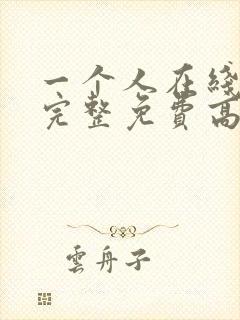 一个人在线
完整免费高
雲舟子